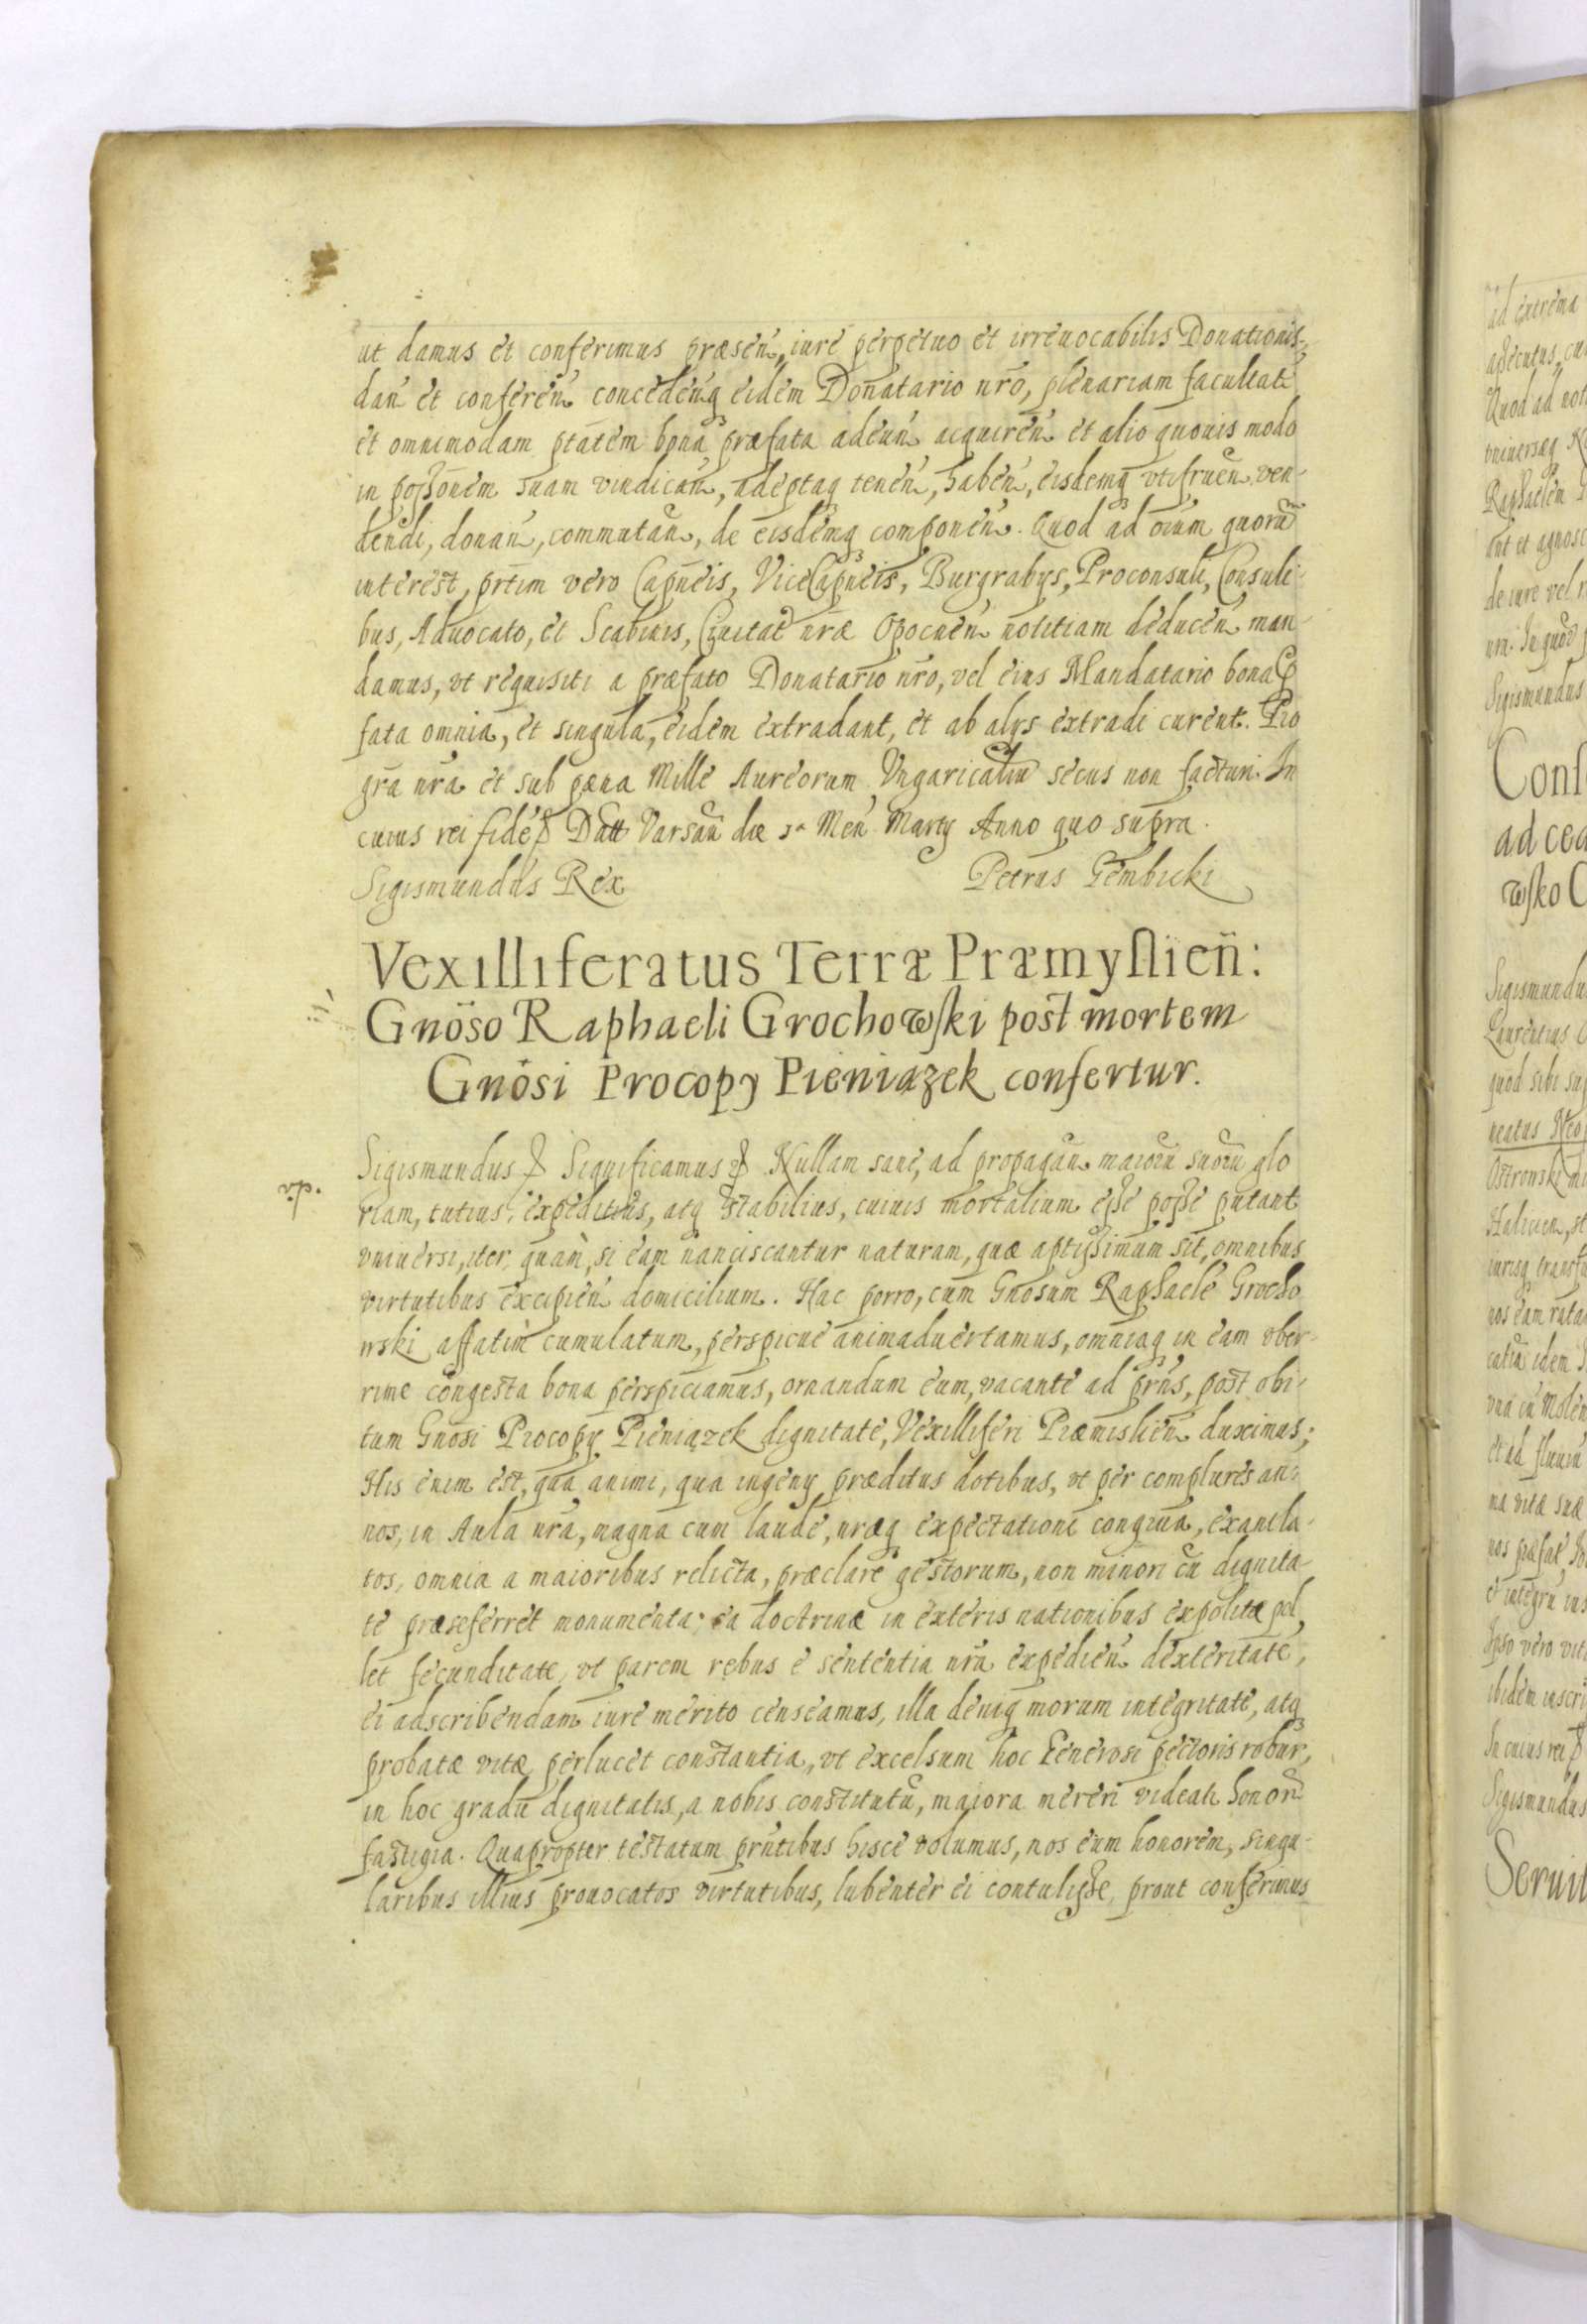 ut damus et conferimus præsen, iure perpetuo et irreuocabilis Donationis
dan et conferen concedenq eidem Donatario nro, plenariam facultatē
et omnimodam ptatem bona præfata adeun acquiren et alio quouis modo
in possonem suam vindican, adeptaq tenen, haben, eisdemq vtifruen ven-
dendi, donan, commutan, de eisdemq componen. Quod ad oium quorū
interest, prtim vero Capneis, ViceCapneis, Burgrabijs, Proconsuli, Consuli-
bus, Aduocato, et Scabinis, Ciuitat nræ Opocnen notitiam deducen man-
damus, vt requisiti a præfato Donatario nro, vel eius Mandatario bona
fata omnia, et singula, eidem extradant, et ab alijs extradi curent. Pro
gra nra et sub pæna Mille Aureorum Vngaricaliū secus non facturi. In
cuius rei fidē Datt Varsau die Men Martij Anno quo supra.
Sigismundus Rex Petrus Gembicki
Vexilliferatus Terræ Præmyslien:
Gnoso Raphaeli Grochowski post mortem
Gnosi Procopij Pieniązek confertur.
Sigismundus Significamus Nullam sane, ad propagan maiorū suorū glo
vp.
riam, tutius, expeditius, atq stabilius, cuiuis mortalium esse posse putant
vniuersi, iter, quam, si eam nanciscantur naturam, quæ aptissimum sit, omnibus
virtutibus excipien domicilium. Hac porro, cum Gnosum Raphaele Grocho
wski affatim cumulatum, perspicue animaduertamus, omniaq in eam vber-
rime congesta bona perspiciamus, ornandum eum, vacante ad prns, post obi-
tum Gnosi Procopij Pieniązek dignitate, Vexilliferi Præmislien duximus;
His enim est, qua animi, qua ingenij præditus dotibus, vt per complures an-
nos, in Aula nra, magna cum laude, nræq expectationi congrua, exantla-
tos, omnia a maioribus relicta, præclare gestorum, non minori cū dignita-
te præseferret monumenta; ea doctrinæ in exteris nationibus expolitæ pol
let fecunditate, vt parem rebus e sententia nra expedien dexteritate,
ei adscribendam iure merito censeamus, illa deniq morum integritate, atq
probatæ vitæ perlucet constantia, vt excelsum hoc Generosi pectoris robur,
in hoc gradu dignitatis, a nobis constitutū, maiora mereri videatr honorū
fastigia. Quapropter testatum prntibus hisce volumus, nos eum honorem, singu-
laribus illius prouocatos virtutibus, lubenter ei contulisse, prout conferimus